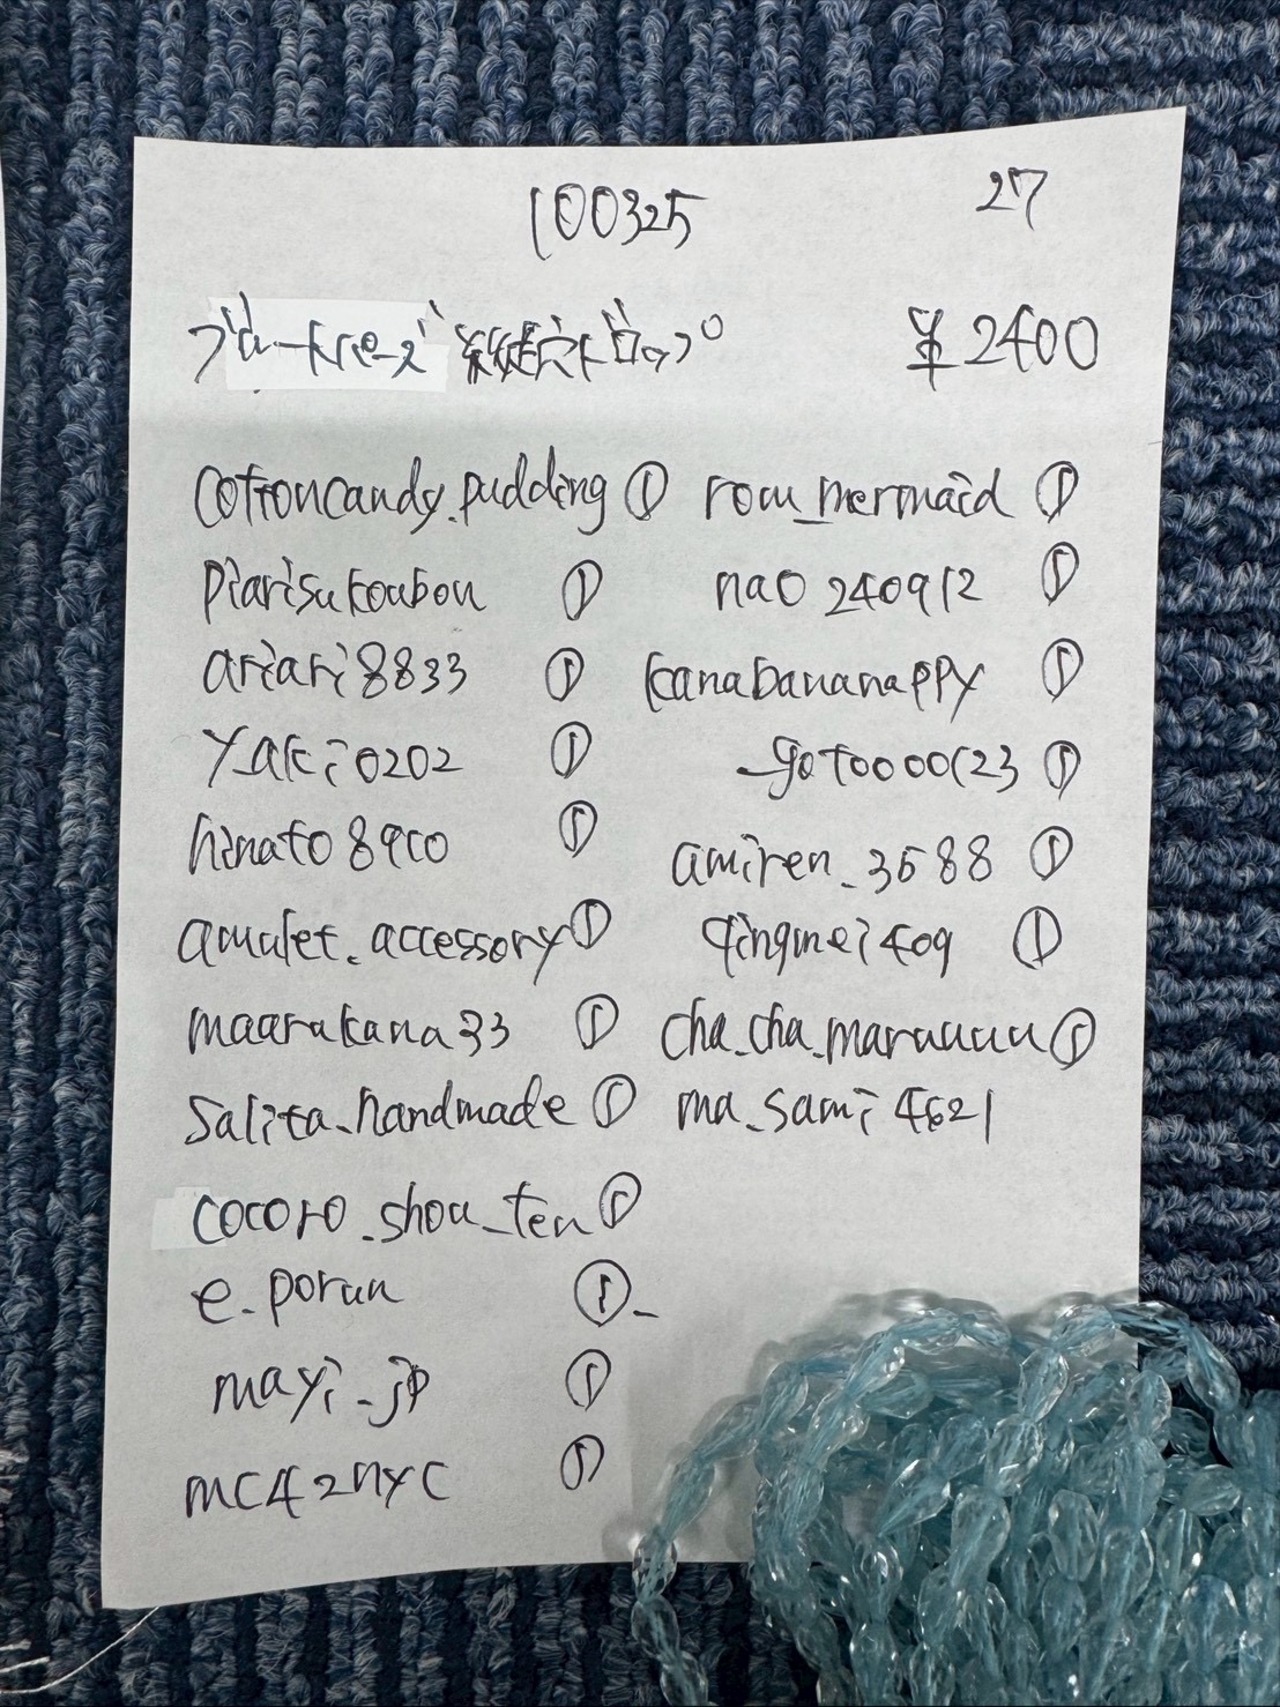 100325 27
ブルートパーズ 縦穴ドロップ ¥2400
cottoncandy.pudding ① rou_mermaid ①
piarisukoubou ① nao240912 ①
ariari8833 ① kanabananappy ①
yaki0202 ① _goto0000123 ①
hinato8910 ① amiren_3588 ①
amulet._accessory ① qingmei409 ①
maarukana33 ① cha_cha_maruuuu ①
salita_handmade ① ma_sami4621
cocoro_shou_ten ①
e_poruu ①
mayi_jp ①
mc42nyc ①